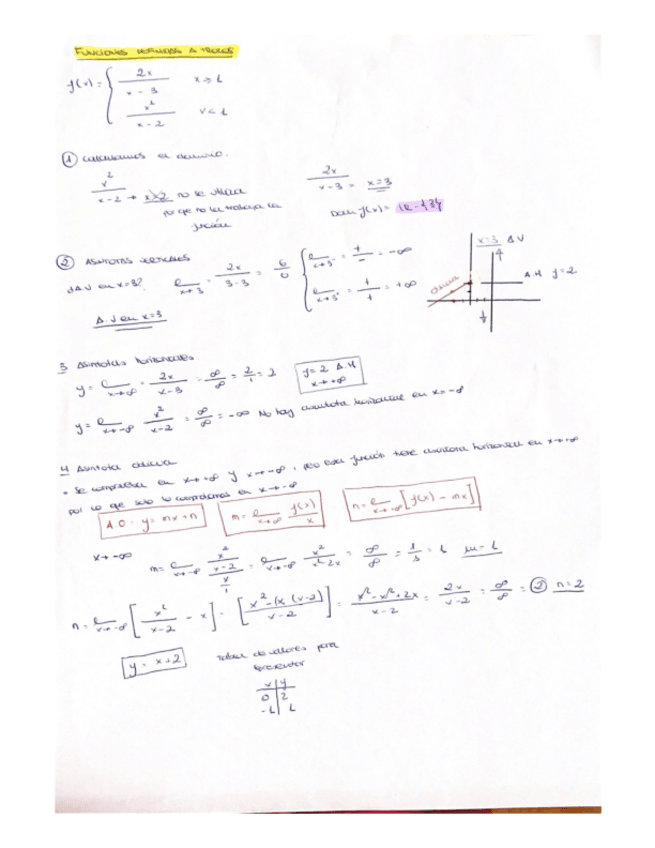 FUNCIONES DEFINIDAS A TROZOS
f(x) = { 2x / x - 3    x ≥ 1
x² / x - 2    x < 1
① Calculamos el dominio.
x² / x - 2 → x = 2 no se utiliza    2x / x - 3 = x = 3
porque no la trabaja la    Dom f(x) = ℝ - {3}
función
② ASINTOTAS VERTICALES
¿A.V en x=3?    2x / 3-3 = 6 / 0    + / - = -∞    + / + = +∞
x=3 A.V
A.H y=2
oblicua
A.V en x=3
3 Asintotas horizontales
y = x→∞ 2x / x-3 = ∞ / ∞ = 2 / 1 = 2    y=2 A.H x→+∞
y = x→-∞ x² / x-2 = ∞ / ∞ = -∞ No hay asintota horizontal en x=-∞
4 Asintota oblicua
• Se comprueba en x→+∞ y x→-∞, pero esta función tiene asintota horizontal en x→+∞
por lo que solo lo comprobamos en x→-∞
A.O: y = mx+n    m = x→∞ f(x) / x    n = x→-∞ [f(x) - mx]
x→-∞    m = x→-∞ x² / x-2 / x / 1 = x→-∞ x² / x²-2x = ∞ / ∞ = 1 / 1 = 1    m=1
n = x→-∞ [x² / x-2 - x] = [x² - (x (x-2)) / x-2] = x² - x² + 2x / x-2 = 2x / x-2 = ∞ / ∞ = ② n=2
y = x+2    Tabla de valores para
representar
x | y
0 | 2
-1 | 1